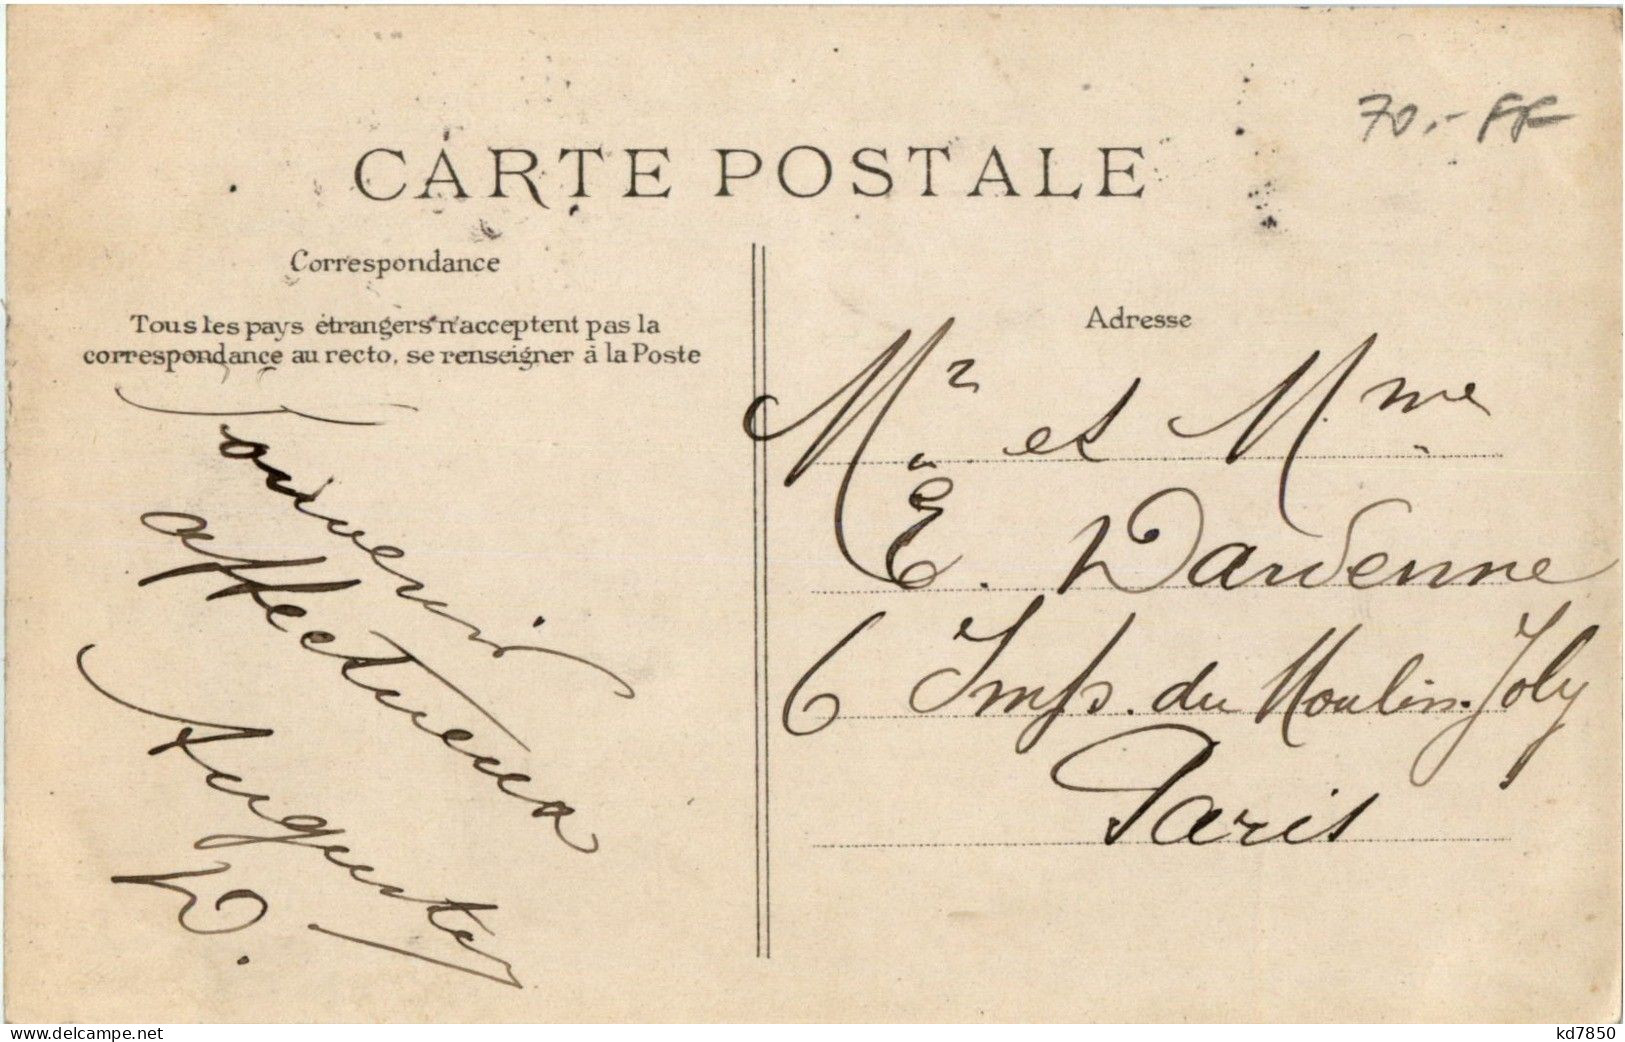 70.- FF
CARTE POSTALE
Correspondance
Tous les pays étrangers n'acceptent pas la
correspondance au recto, se renseigner à la Poste
Souvenir
affectueux
Auguste
D.
Adresse
Mr et Mme
E. Dardenne
6 Imp. du Moulin-Joly
Paris
www.delcampe.net
kd7850